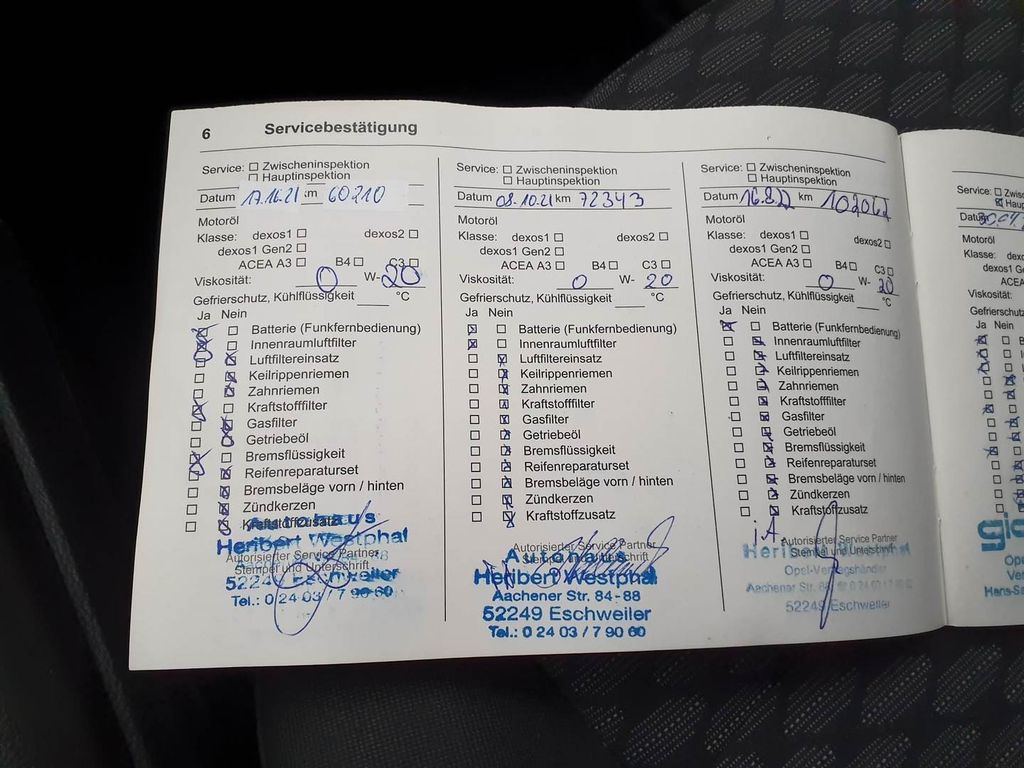 6 Servicebestätigung
Service: ☐ Zwischeninspektion
☐ Hauptinspektion
Datum 17.16.21 km 60210
Motoröl
Klasse: dexos1 ☐ dexos2 ☐
dexos1 Gen2 ☐
ACEA A3 ☐ B4 ☐ C3 ☐
Viskosität: 0 W- 20
Gefrierschutz, Kühlflüssigkeit ____ °C
Ja Nein
☒ ☐ Batterie (Funkfernbedienung)
☒ ☐ Innenraumluftfilter
☐ ☒ Luftfiltereinsatz
☐ ☒ Keilrippenriemen
☐ ☒ Zahnriemen
☒ ☐ Kraftstofffilter
☐ ☒ Gasfilter
☐ ☒ Getriebeöl
☒ ☐ Bremsflüssigkeit
☐ ☒ Reifenreparaturset
☐ ☒ Bremsbeläge vorn / hinten
☐ ☒ Zündkerzen
☐ ☒ Kraftstoffzusatz
Autohaus
Heribert Westphal
Autorisierter Service Partner
Stempel und Unterschrift
52249 Eschweiler
Tel.: 0 24 03 / 7 90 60
Service: ☐ Zwischeninspektion
☐ Hauptinspektion
Datum 08.10.21 km 72343
Motoröl
Klasse: dexos1 ☐ dexos2 ☐
dexos1 Gen2 ☐
ACEA A3 ☐ B4 ☐ C3 ☐
Viskosität: 0 W- 20
Gefrierschutz, Kühlflüssigkeit ____ °C
Ja Nein
☒ ☐ Batterie (Funkfernbedienung)
☒ ☐ Innenraumluftfilter
☐ ☒ Luftfiltereinsatz
☐ ☒ Keilrippenriemen
☐ ☒ Zahnriemen
☐ ☒ Kraftstofffilter
☐ ☒ Gasfilter
☐ ☒ Getriebeöl
☐ ☒ Bremsflüssigkeit
☐ ☒ Reifenreparaturset
☐ ☒ Bremsbeläge vorn / hinten
☐ ☒ Zündkerzen
☐ ☒ Kraftstoffzusatz
Autorisierter Service Partner
Autohaus
Stempel und Unterschrift
Heribert Westphal
Aachener Str. 84-88
52249 Eschweiler
Tel.: 0 24 03 / 7 90 60
Service: ☐ Zwischeninspektion
☐ Hauptinspektion
Datum 16.8.22 km 102062
Motoröl
Klasse: dexos1 ☐ dexos2 ☐
dexos1 Gen2 ☐
ACEA A3 ☐ B4 ☐ C3 ☐
Viskosität: 0 W- 20
Gefrierschutz, Kühlflüssigkeit ____ °C
Ja Nein
☒ ☐ Batterie (Funkfernbedienung)
☐ ☒ Innenraumluftfilter
☐ ☒ Luftfiltereinsatz
☐ ☒ Keilrippenriemen
☐ ☒ Zahnriemen
☐ ☒ Kraftstofffilter
☐ ☒ Gasfilter
☐ ☒ Getriebeöl
☐ ☒ Bremsflüssigkeit
☐ ☒ Reifenreparaturset
☐ ☒ Bremsbeläge vorn / hinten
☐ ☒ Zündkerzen
☐ ☒ Kraftstoffzusatz
i.A.
Autorisierter Service Partner
Stempel und Unterschrift
Opel-Vertragshändler
Aachener Str.
52249 Eschweiler
Service: ☐
☒
Motoröl
Klasse:
dexos1
ACEA
Viskosität:
Ja Nein